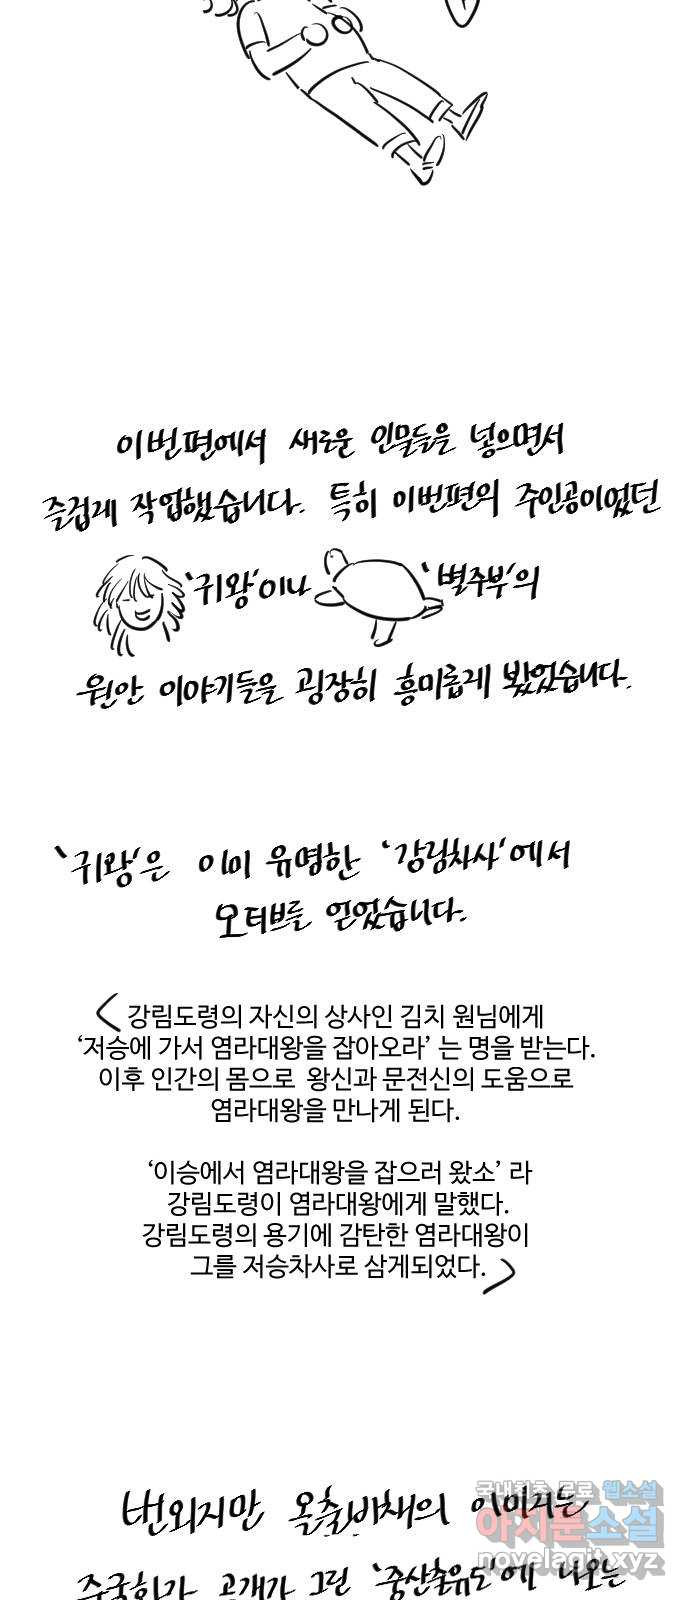 이번편에서 새로운 인물들을 넣으면서
즐겁게 작업했습니다. 특히 이번편의 주인공이었던
'귀왕'이나 '별주부'의
원안 이야기들을 굉장히 흥미롭게 봤었습니다.
'귀왕'은 이미 유명한 '강림차사'에서
모티브를 얻었습니다.
<강림도령의 자신의 상사인 김치 원님에게
'저승에 가서 염라대왕을 잡아오라' 는 명을 받는다.
이후 인간의 몸으로 왕신과 문전신의 도움으로
염라대왕을 만나게 된다.
'이승에서 염라대왕을 잡으러 왔소' 라
강림도령이 염라대왕에게 말했다.
강림도령의 용기에 감탄한 염라대왕이
그를 저승차사로 삼게되었다.>
번외지만 옥출비채의 이미지는
국내최초 무료 웹소설
아지툰소설
중국화가 공개가 그린 '중산출유도'에 나오는
novelagit.xyz